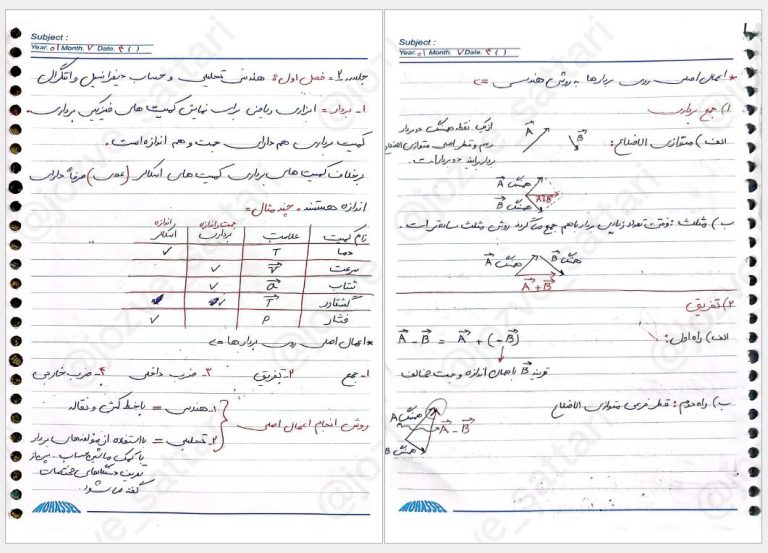 Subject :
Year. ۰۱ Month. ۷ Date. ۳ ( )
جلسه ۲ = فصل اول: هندسه تحلیلی و حساب دیفرانسیل و انتگرال
۱- بردار = ابزاری ریاضی برای نمایش کمیت های فیزیکی برداری.
کمیت برداری هم دارای جهت و هم اندازه است.
برخلاف کمیت های برداری کمیت های اسکالر (عددی) صرفاً دارای
اندازه هستند. چند مثال =
جهت و اندازه اندازه
نام کمیت علامت برداری اسکالر
دما T ✓
سرعت V ✓
شتاب a ✓
گشتاور T ✓
فشار P ✓
*اعمال اصلی روی بردارها =>
۱- جمع ۲- تفریق ۳- ضرب داخلی ۴- ضرب خارجی
روش انجام اعمال اصلی
۱- هندسی = با خط کش و نقاله
۲- تحلیلی = با استفاده از مولفه‌های بردار
با کمک ماشین حساب. پس از
تعریف دستگاه‌های مختصات
گفته می‌شود
MOHASSEL
Subject :
Year. ۰۱ Month. ۷ Date. ۳ ( )
* اعمال اصلی روی بردارها به روش هندسی =>
۱) جمع برداری
الف) متوازی الاضلاع:
A B
از یک نقطه همسنگ دو بردار
رسم و قطر اصلی متوازی الاضلاع
بردار برایند دو بردار است.
همسنگ A
A+B
همسنگ B
ب) مثلث: وقتی تعداد زیادی بردار باهم جمع می‌گردد روش مثلث ساده‌تر است.
همسنگ A همسنگ B
A + B
۲) تفریق
الف) راه اول: A - B = A + (-B)
قرینه B با همان اندازه و جهت مخالف
ب) راه دوم: قطر فرعی متوازی الاضلاع
همسنگ A
A - B
همسنگ B
MOHASSEL
@jozve_sattari